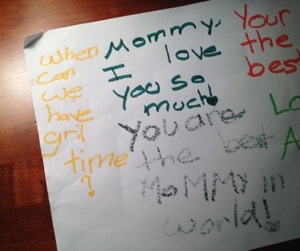 when
can
we
have
gril
time
?
Mommy,
I love
you so
much!
Your
the
best
You are
the best
MoMMy in
world!